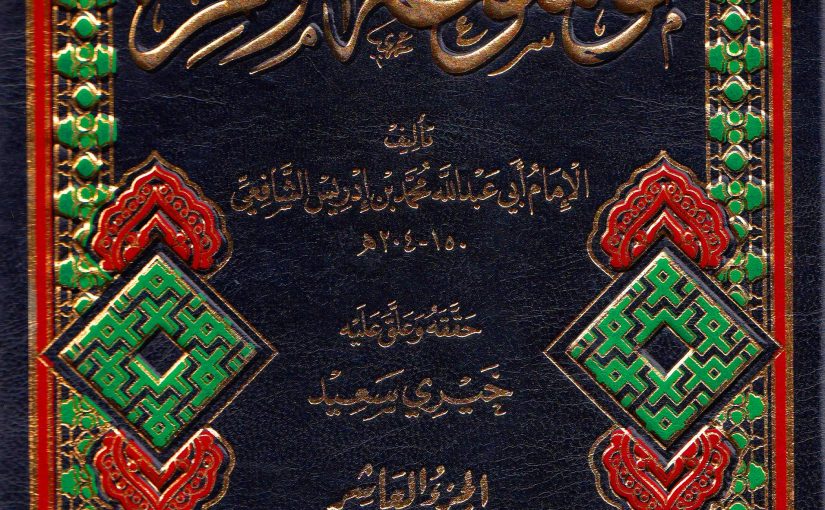 موسوعة الأم
تَأليفُ
الإمَامُ أَبي عَبدالله مُحَمَّد بن إدريس الشَّافِعيّ
١٥٠-٢٠٤هـ
حَقَّقَهُ وَعَلَّقَ عَلَيه
خَيري سَعِيد
الجزءُ العَاشِر